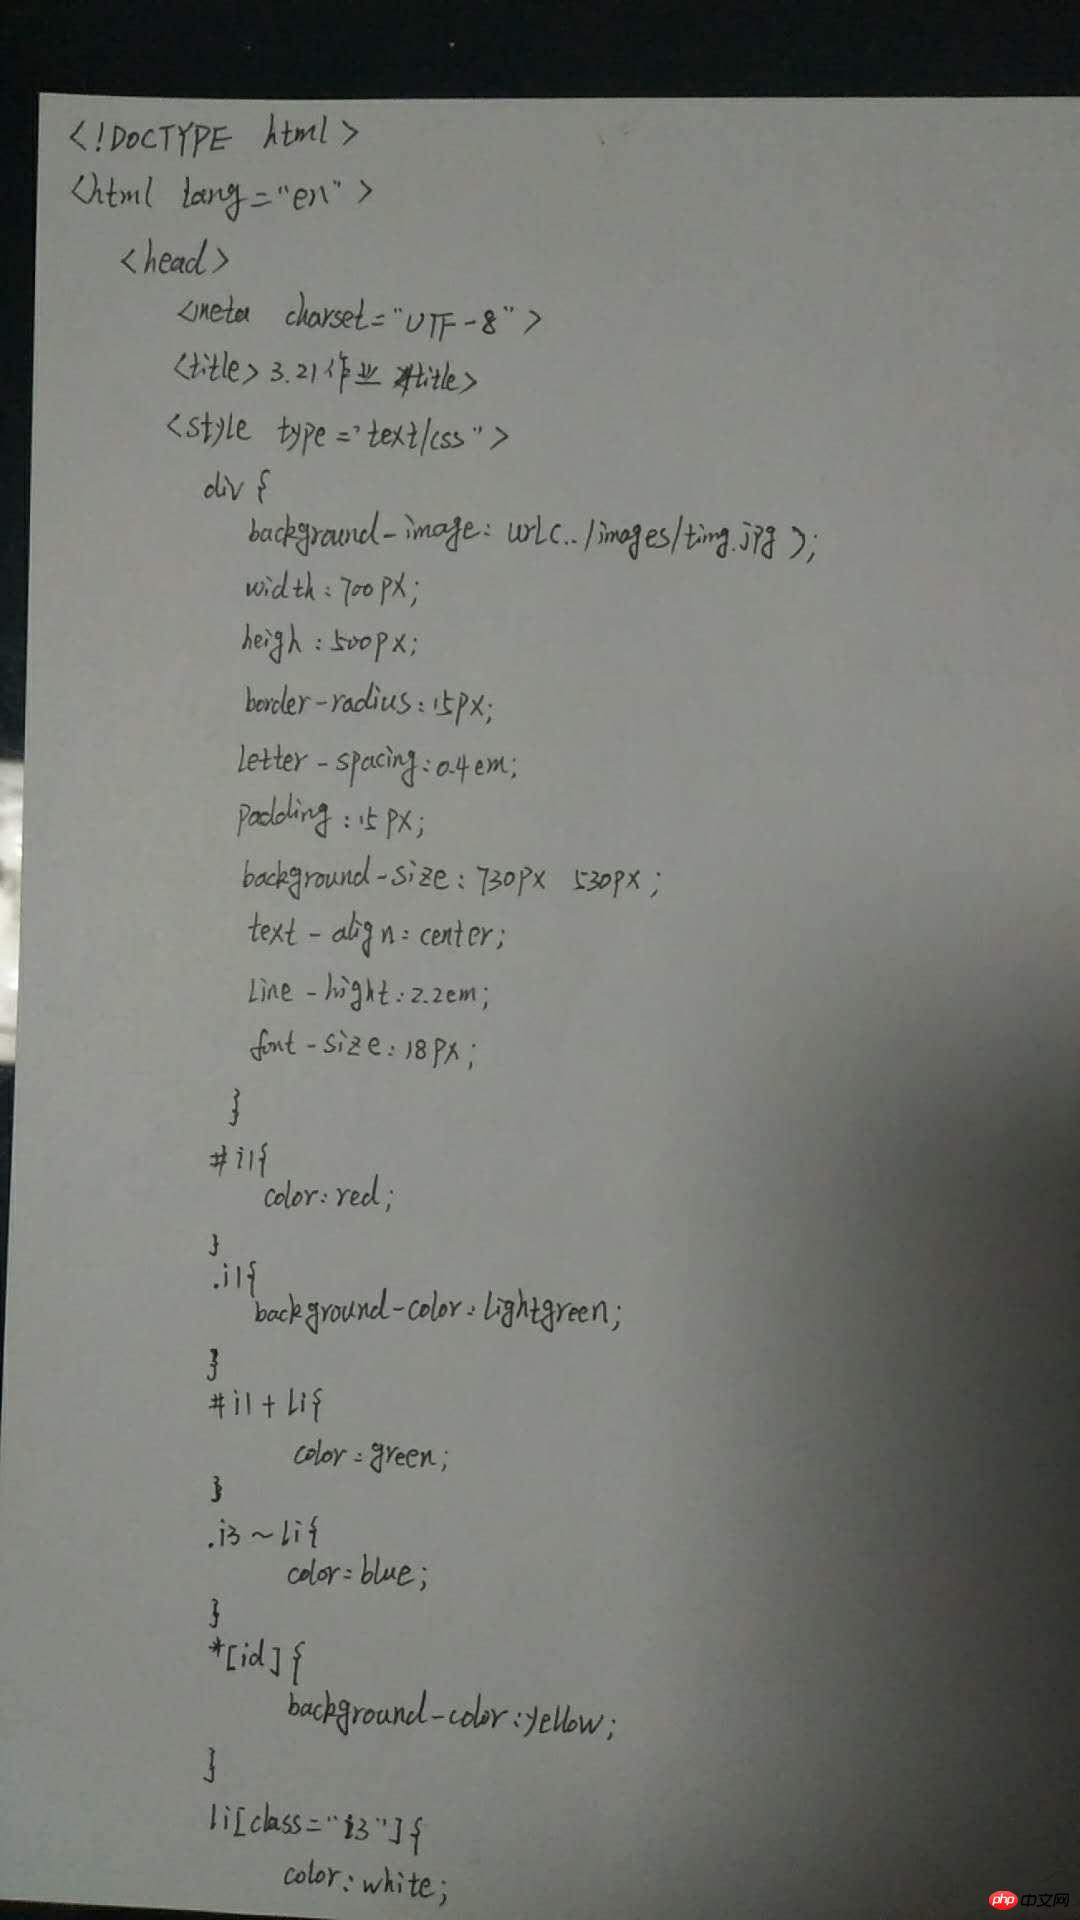 <!DOCTYPE html>
<html lang="en">
<head>
<meta charset="UTF-8">
<title>3.21作业</title>
<style type="text/css">
div {
background-image: url(../images/timg.jpg);
width:700px;
heigh:500px;
border-radius:15px;
letter-spacing:0.4em;
padding:15px;
background-size:730px 530px;
text-align:center;
line-hight:2.2em;
font-size:18px;
}
#i1{
color:red;
}
.i1{
background-color:lightgreen;
}
#i1+li{
color:green;
}
.i3~li{
color:blue;
}
*[id]{
background-color:yellow;
}
li[class="i3"]{
color:white;
php中文网